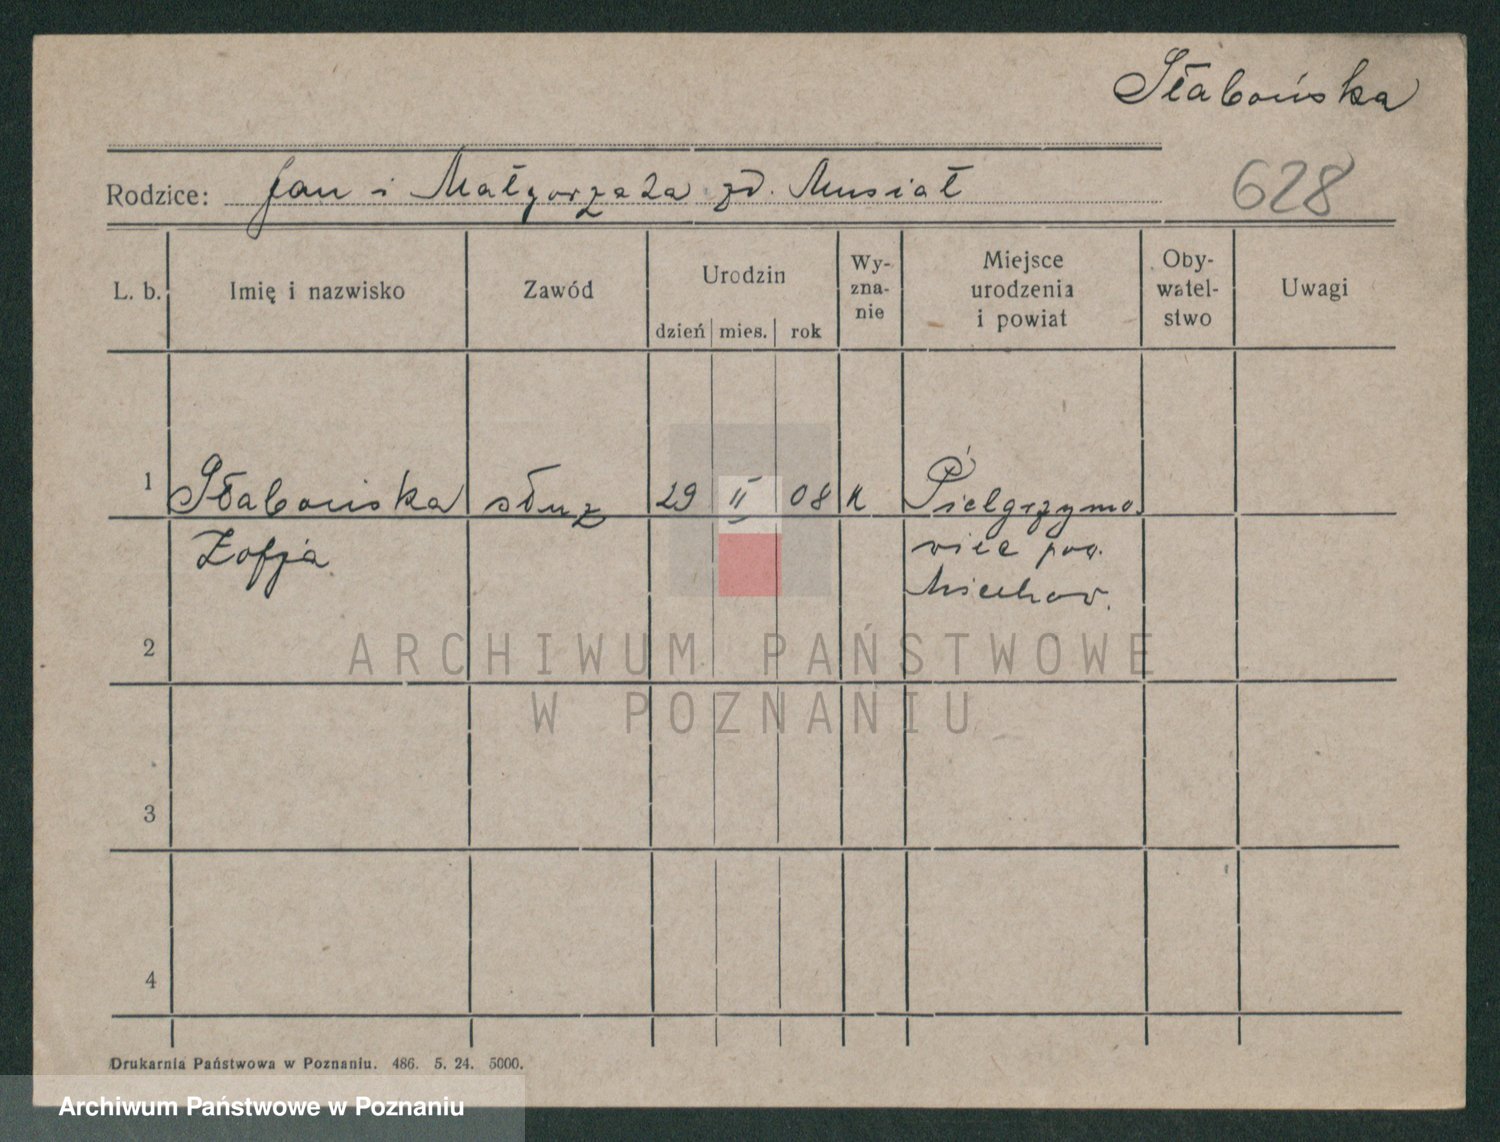 Słabońska
Rodzice: Jan i Małgorzata zd. Musiał
628
L. b.
Imię i nazwisko
Zawód
Urodzin
dzień mies. rok
Wy-
zna-
nie
Miejsce
urodzenia
i powiat
Oby-
watel-
stwo
Uwagi
1 Słabońska służ 29 II 08 k Pielgrzymo
Zofja wice pow.
Miechow.
2
ARCHIWUM PAŃSTWOWE
W POZNANIU
3
4
Drukarnia Państwowa w Poznaniu. 486. 5. 24. 5000.
Archiwum Państwowe w Poznaniu